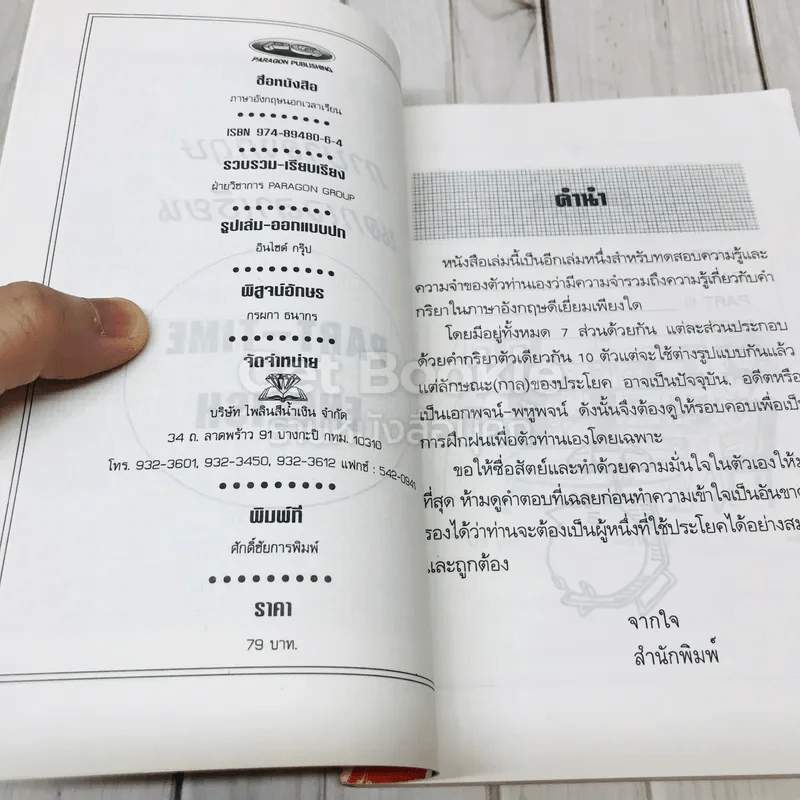 PARAGON PUBLISHING
ชื่อหนังสือ
ภาษาอังกฤษนอกเวลาเรียน
ISBN 974-89480-6-4
รวบรวม-เรียบเรียง
ฝ่ายวิชาการ PARAGON GROUP
รูปเล่ม-ออกแบบปก
อินไซด์ กรุ๊ป
พิสูจน์อักษร
กรผกา ธนากร
จัดจำหน่าย
บริษัท ไพลินสีน้ำเงิน จำกัด
34 ถ. ลาดพร้าว 91 บางกะปิ กทม. 10310
โทร. 932-3601, 932-3450, 932-3612 แฟกซ์ : 542-0941
พิมพ์ที่
ศักดิ์ชัยการพิมพ์
ราคา
79 บาท.
คำนำ
หนังสือเล่มนี้เป็นอีกเล่มหนึ่งสำหรับทดสอบความรู้และ
ความจำของตัวท่านเองว่ามีความจำรวมถึงความรู้เกี่ยวกับคำ
กริยาในภาษาอังกฤษดีเยี่ยมเพียงใด
โดยมีอยู่ทั้งหมด 7 ส่วนด้วยกัน แต่ละส่วนประกอบ
ด้วยคำกริยาตัวเดียวกัน 10 ตัวแต่จะใช้ต่างรูปแบบกันแล้ว
แต่ลักษณะ(กาล)ของประโยค อาจเป็นปัจจุบัน, อดีตหรือ
เป็นเอกพจน์-พหูพจน์ ดังนั้นจึงต้องดูให้รอบคอบเพื่อเป็น
การฝึกฝนเพื่อตัวท่านเองโดยเฉพาะ
ขอให้ซื่อสัตย์และทำด้วยความมั่นใจในตัวเองให้ม
ที่สุด ห้ามดูคำตอบที่เฉลยก่อนทำความเข้าใจเป็นอันขาด
รองได้ว่าท่านจะต้องเป็นผู้หนึ่งที่ใช้ประโยคได้อย่างสม
และถูกต้อง
จากใจ
สำนักพิมพ์
Get Bookie
ร้านหนังสือมือ